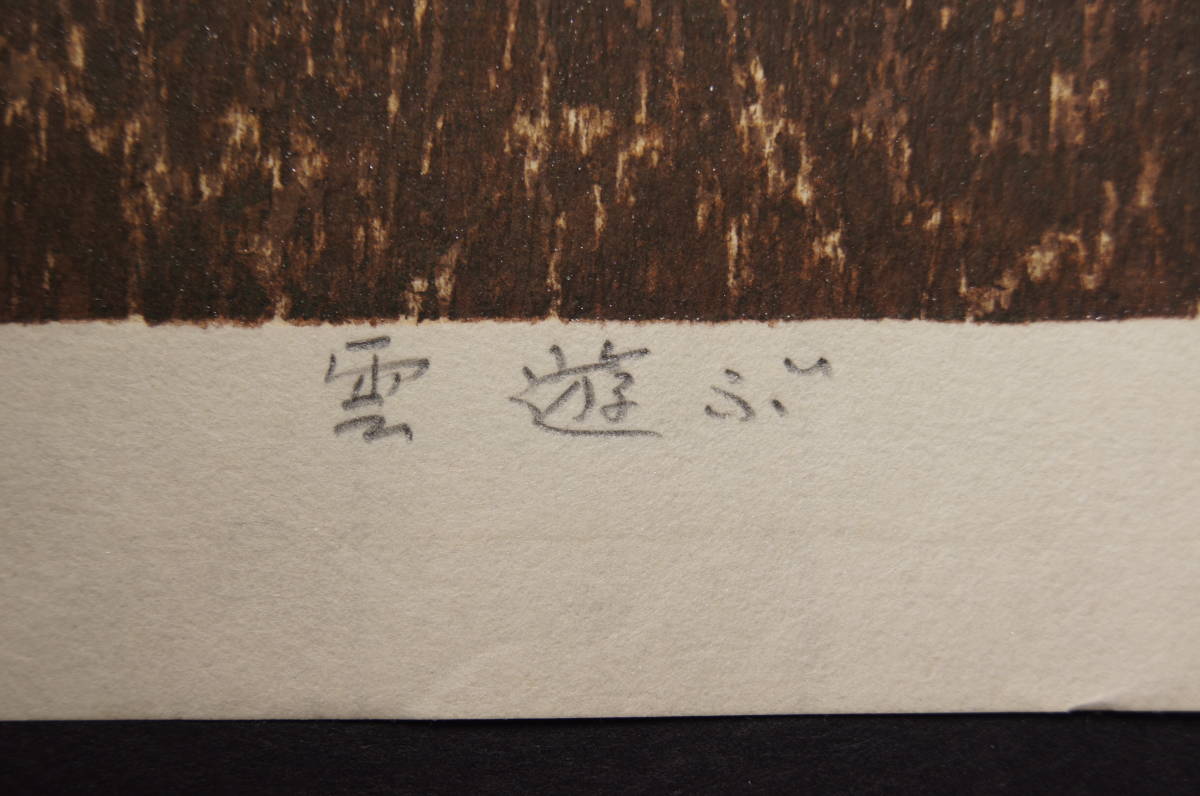 雲 遊ぶ